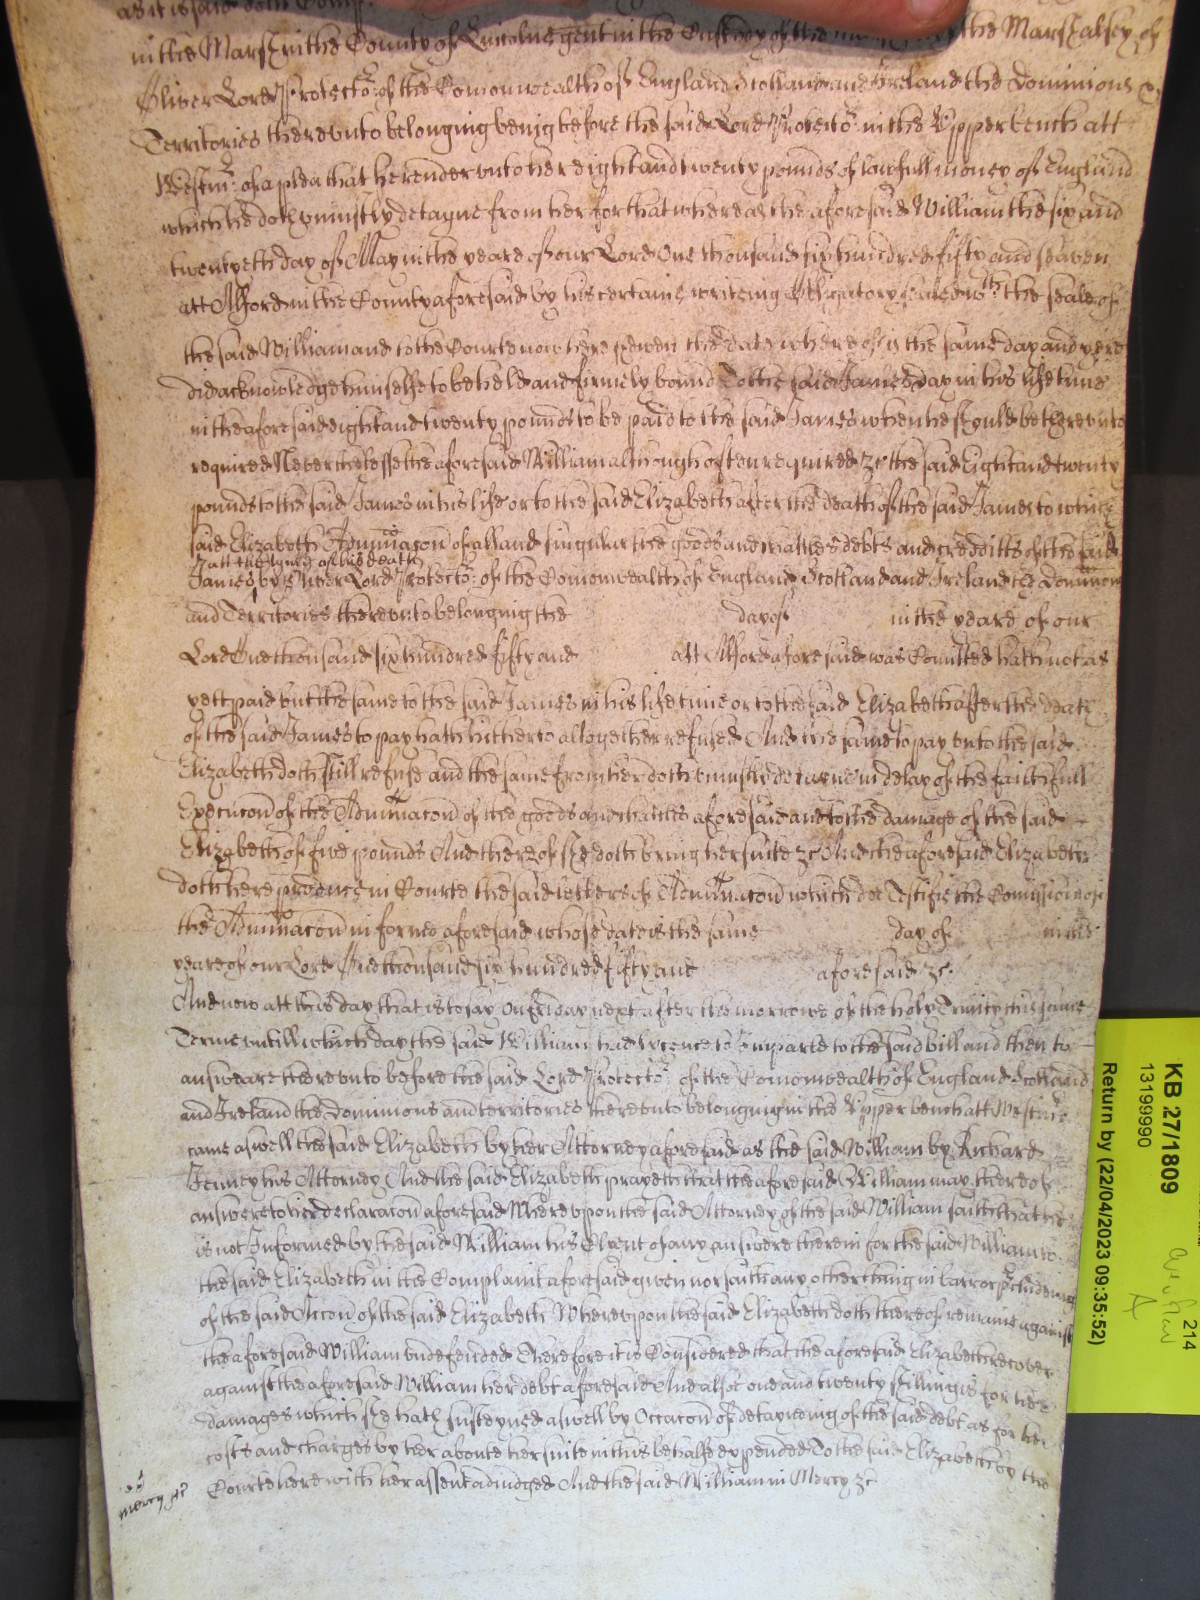 as it is said doth Comp
in the Marsh in the County of Lincolne gent in the Custody of the the Marshalsey of
Oliver Lord Protector of the Comonwealth of England Scotland and Ireland the Dominions &
Territories thereunto belonging being before the said Lord Protector in the Upper bench att
Westmr: of a plea that he render unto her eight and twenty pounds of lawfull money of England
which he doth uniustly detayne from her for that whereas the aforesaid William the six and
twentyeth day of May in the yeare of our Lord One thousand six hundred fifty and seaven
att Alford in the County aforesaid by his certaine writeing Obligatory sealed wth the seale of
the said William and to the Courte now here shewen the date whereof is the same day and yere
did acknowledge himselfe to be held and firmely bound To the said James day in his life time
in the aforesaid eight and twenty pounds to be paid to the said James when he should be thereunto
required Neverthelesse the aforesaid William although often required &c the said Eight and twenty
pounds to the said James in his life or to the said Elizabeth after the death of the said James to which
said Elizabeth Adminacon of all and singular the goods and chattles debts and creditts of the said
att the tyme of his death
James by Oliver Lord Protector of the Comonwealth of England Scotland and Ireland the Dominions
and Territories thereunto belonging the day of in the yeare of our
Lord One thousand six hundred fifty and att Alford aforesaid was Comitted hath not as
yett paid but the same to the said James in his life time or to the said Elizabeth after the death
of the said James to pay hath hitherto altogether refused And the same to pay unto the said
Elizabeth doth still refuse and the same from her doth uniustly detayne in delay of the faithfull
Execucon of the Adminacon of the goods and chattles aforesaid and to the damage of the said
Elizabeth of five pounds And thereof she doth bring her suite &c And the aforesaid Elizabeth
doth here produce in Courte the said letters of Adminacon which doe Testifie the Comission of
the Adminacon in forme aforesaid whose date is the same day of in the
yeare of our Lord One thousand six hundred fifty and aforesaid &c.
And now att this day that is to say on Friday next after the morrowe of the holy Trinity this same
Terme untill which day the said William had lycence to Imparle to the said bill and then to
answeare thereunto before the said Lord Protector of the Comonwealth of England Scotland
and Ireland the Dominions and territories thereunto belonging in the Upper bench att Westmr
came aswell the said Elizabeth by her Attorney aforesaid as the said William by Richard
Jenney his Attorney And the said Elizabeth prayeth that the aforesaid William may thereof
answere to her declaracon aforesaid Whereupon the said Attorney of the said William saith that he
is not Informed by the said William his Clyent of any answere therein for the said William to
the said Elizabeth in the Complaint aforesaid given nor saith any other thing in barr or pcludeing
of the said Accon of the said Elizabeth Whereupon the said Elizabeth doth thereof remaine against
the aforesaid William undefended Therefore it is Considered that the aforesaid Elizabeth recover
against the aforesaid William her debt aforesaid And alsoe one and twenty shillings for her
damages which she hath susteyned aswell by Occacon of detayneing of the said debt as for her
costs and charges by her aboute her suite in this behalfe expended To the said Elizabeth by the
Courte here with her assent adiudged And the said William in Mercy &c
mercy &c
KB 27/1809
13199990
Return by (22/04/2023 09:35:52)
214
A